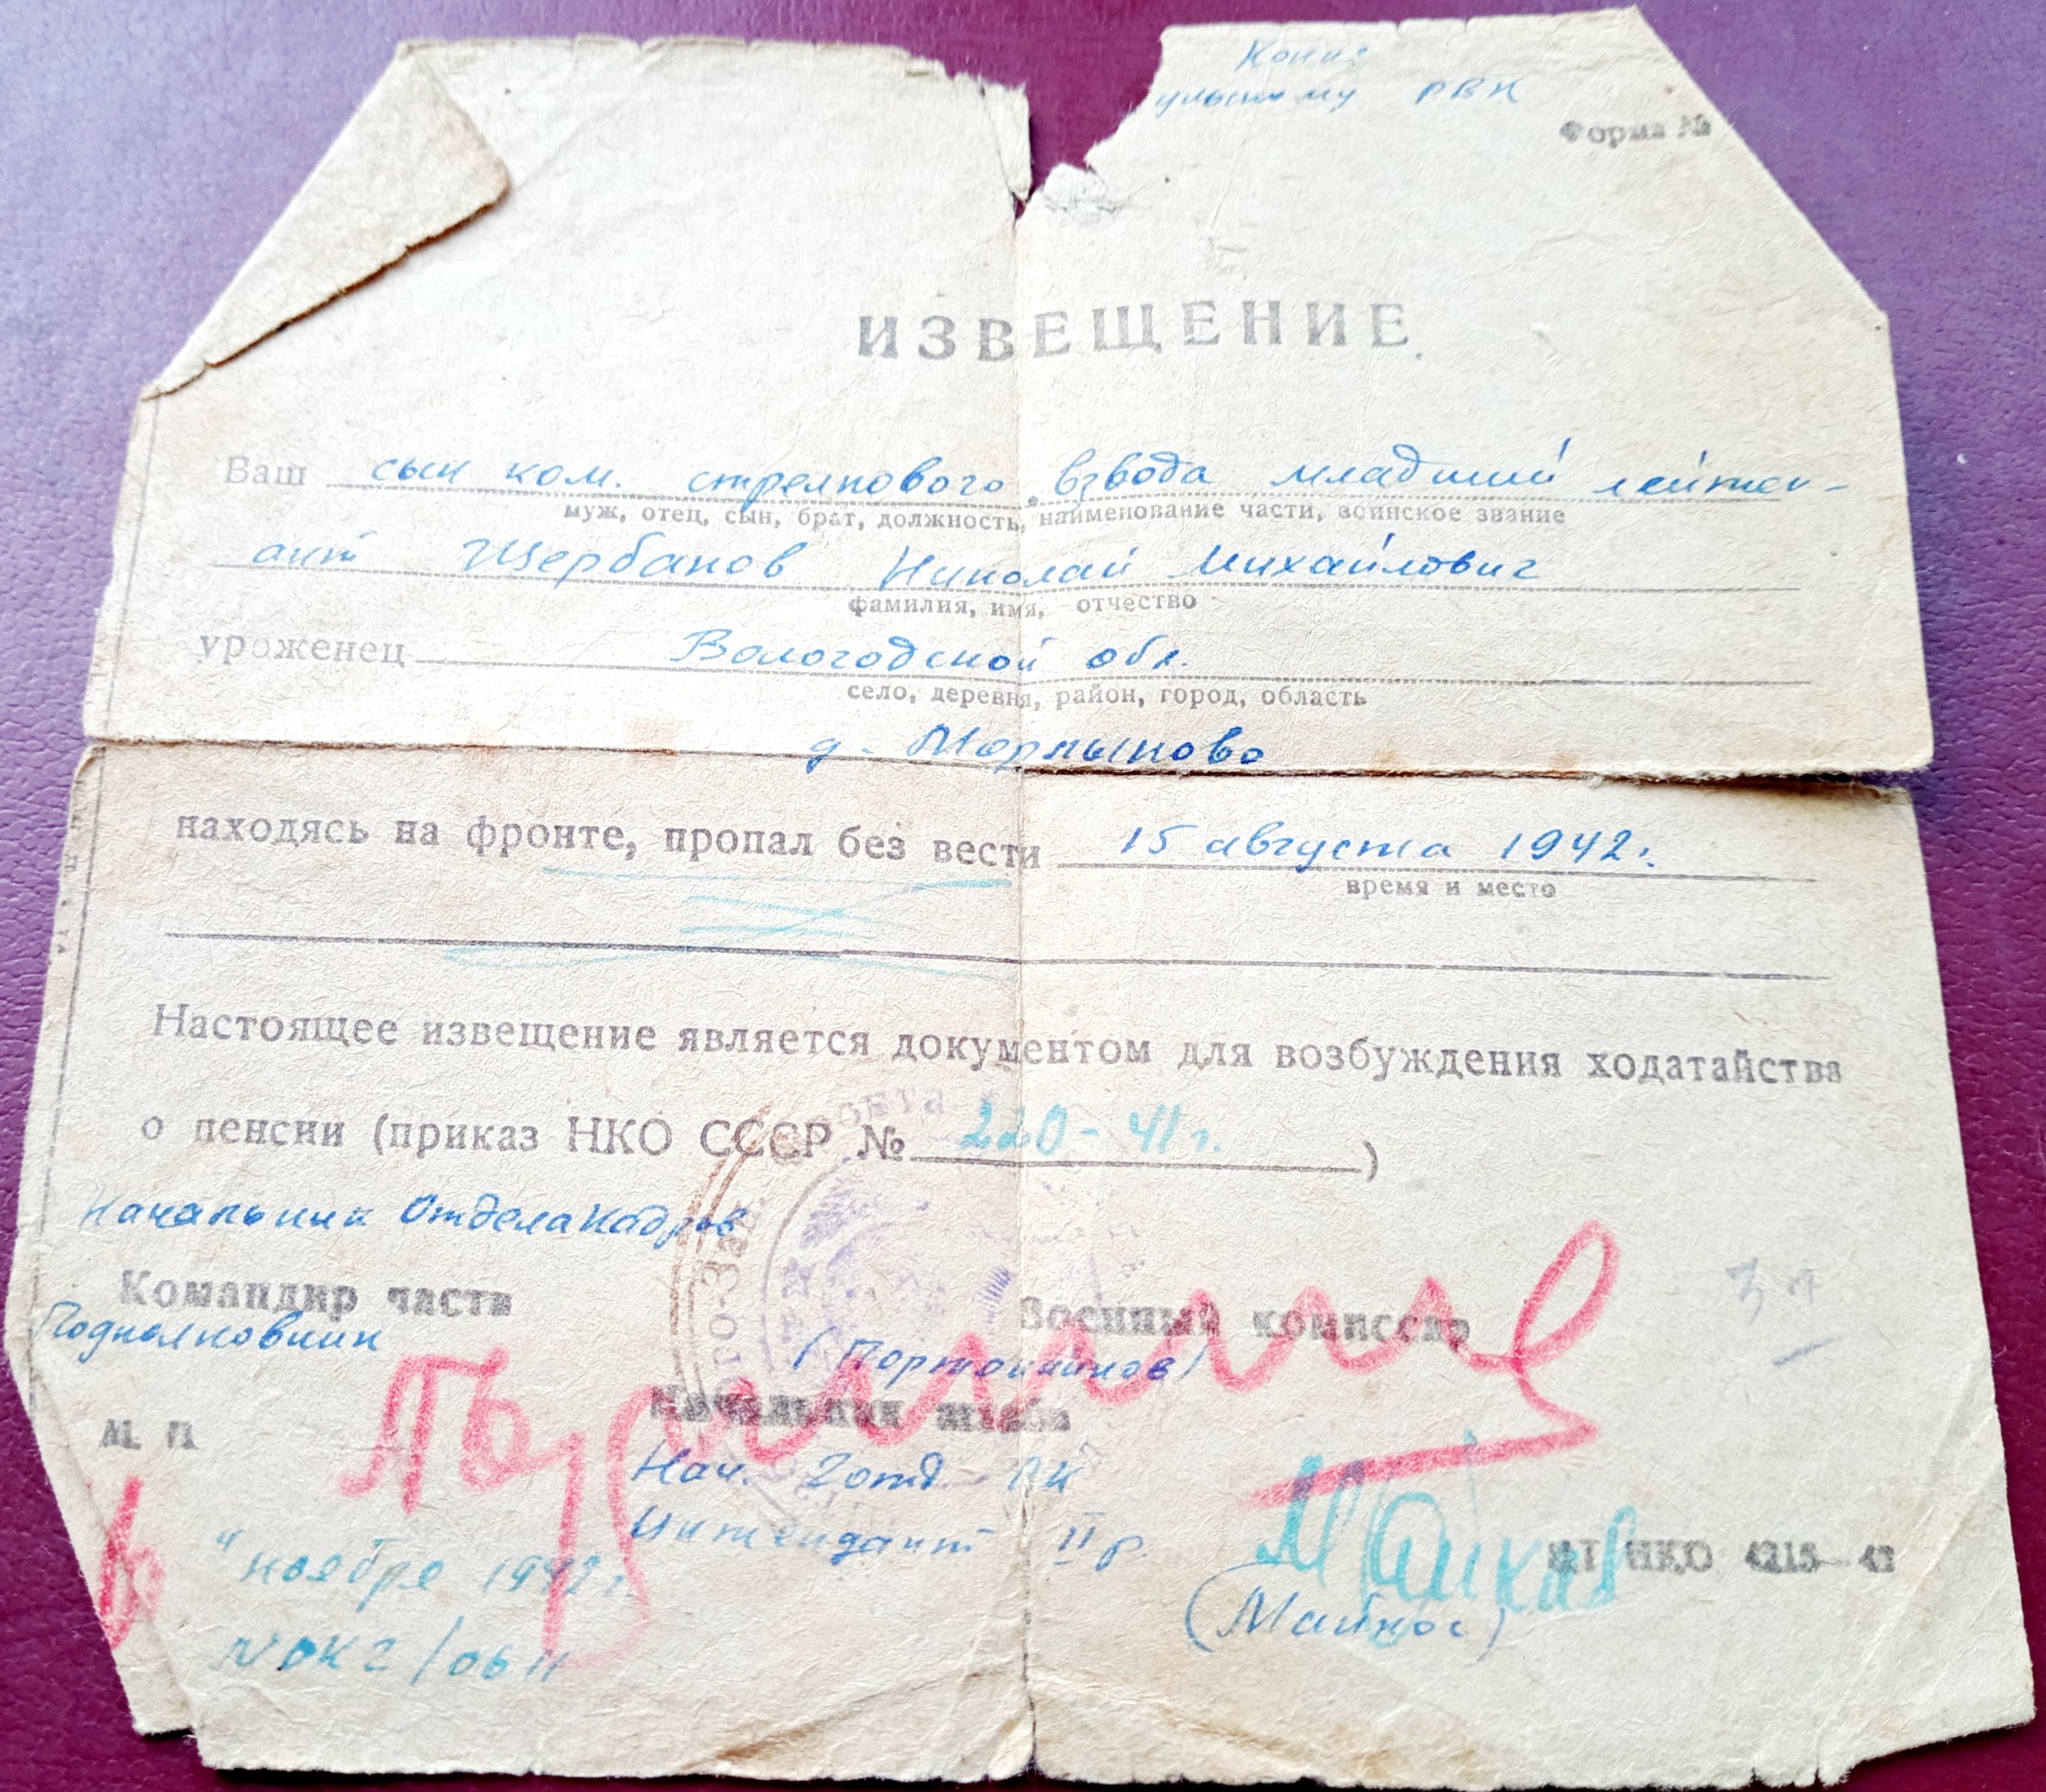 Копия
ульскому РВК
Форма №
ИЗВЕЩЕНИЕ.
Ваш сын ком. стрелкового взвода младший лейтен-
муж, отец, сын, брат, должность, наименование части, воинское звание
ант Щербаков Николай Михайлович
фамилия, имя, отчество
уроженец Вологодской обл.
село, деревня, район, город, область
д.
находясь на фронте, пропал без вести 15 августа 1942г.
время и место
Настоящее извещение является документом для возбуждения ходатайства
о пенсии (приказ НКО СССР № 220-41г.)
Начальник Отдела Кадров
Командир части Военный комиссар
Подполковник
Начальник штаба
М. П
Нач. 2 отд ОК
Интендант II р.
" ноября 1942г.
НКО 4215-42